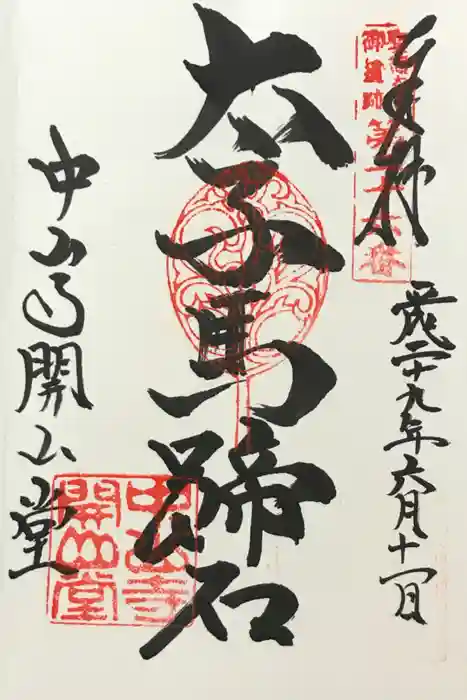 奉拝
聖徳太子
御遺跡
第二十六番
平成二十九年六月十一日
太子馬蹄石
中山寺開山堂
中山寺
開山堂